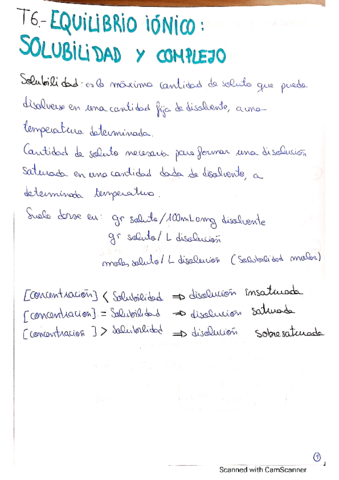 T6.- EQUILIBRIO IÓNICO:
SOLUBILIDAD Y COMPLEJO
Solubilidad: es la máxima cantidad de soluto que puede
disolverse en una cantidad fija de disolvente, a una
temperatura determinada.
Cantidad de soluto necesaria para formar una disolución
saturada en una cantidad dada de disolvente, a
determinada temperatura.
Suele darse en: gr soluto/100mL o mg disolvente
gr soluto/L disolución
moles soluto/L disolución (Solubilidad molar)
[concentración] < Solubilidad ⇒ disolución insaturada
[concentracion] = Solubilidad ⇒ disolucion saturada
[concentracion] > Solubilidad ⇒ disolución sobresaturada
1
Scanned with CamScanner